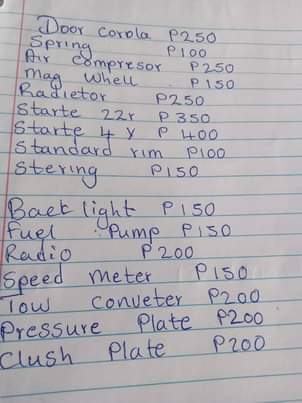 Door corola P250
Spring P100
Air compresor P250
Mag Whell P150
Radietor P250
Starte 22r P350
Starte 4 Y P400
Standard rim P100
Stering P150
Back light P150
Fuel Pump P150
Radio P200
Speed meter P150
Tow Conveter P200
Pressure Plate P200
Clush Plate P200